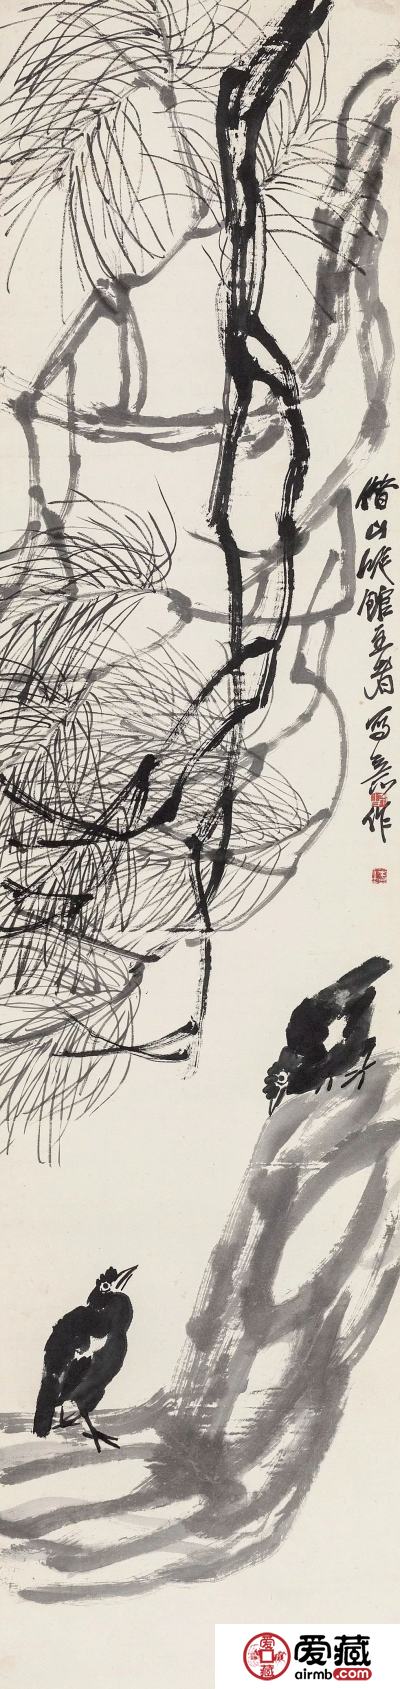 借山吟館主者寫意作
爱藏
airmb.com